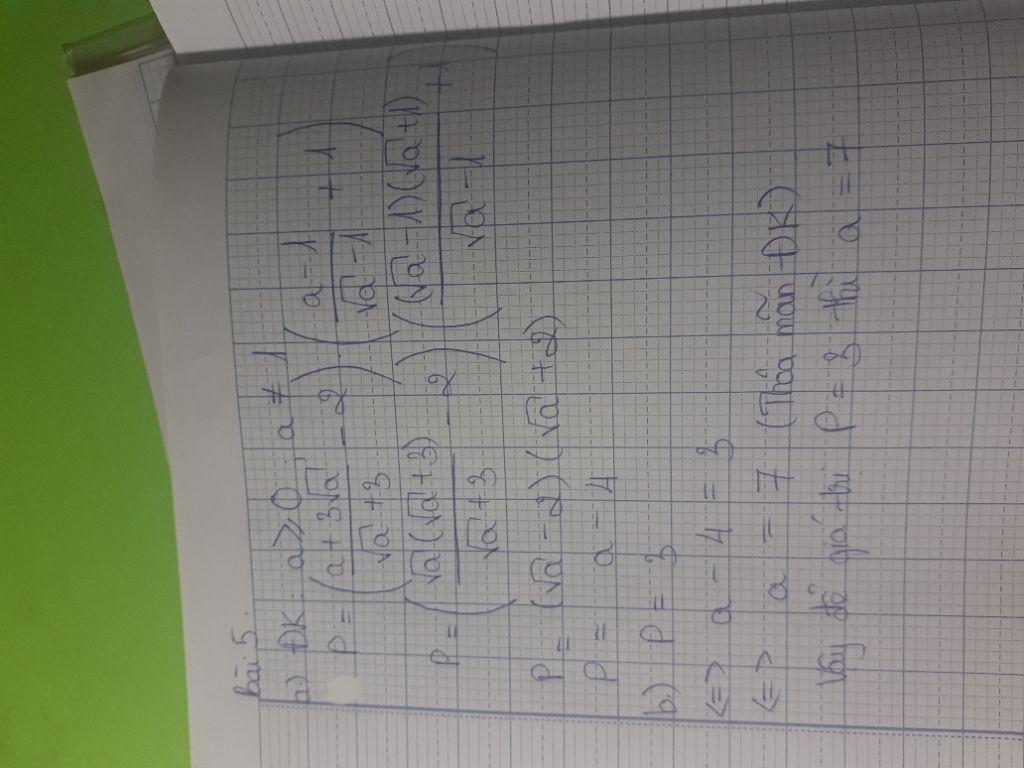 Bài 5.
a) ĐK: a ≥ 0, a ≠ 1
P = ( (a + 3√a)/(√a + 3) - 2 ) . ( (a - 1)/(√a - 1) + 1 )
P = ( (√a(√a + 3))/(√a + 3) - 2 ) ( ((√a - 1)(√a + 1))/(√a - 1) + 1 )
P = (√a - 2)(√a + 2)
P = a - 4
b) P = 3
<=> a - 4 = 3
<=> a = 7 (Thỏa mãn ĐK)
Vậy để giá trị P = 3 thì a = 7